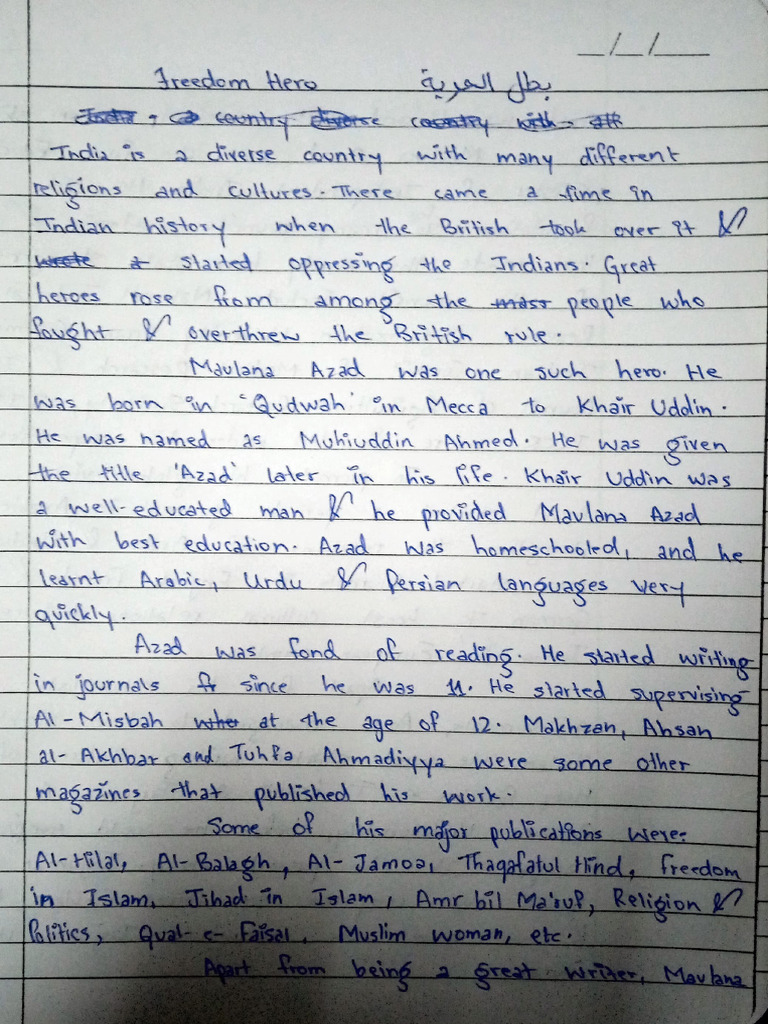 _/_/___
Freedom Hero بطل الحرية
country diverse country with
India is a diverse country with many different
religions and cultures. There came a time in
Indian history when the British took over it &
wrote started oppressing the Indians. Great
heroes rose from among the mass people who
fought & overthrew the British rule.
Maulana Azad was one such hero. He
was born in 'Qudwah' in Mecca to Khair Uddin.
He was named as Muhiuddin Ahmed. He was given
the title 'Azad' later in his life. Khair Uddin was
a well-educated man & he provided Maulana Azad
with best education. Azad was homeschooled, and he
learnt Arabic, Urdu & Persian languages very
quickly.
Azad was fond of reading. He started writing
in journals since he was 11. He started supervising
Al-Misbah at the age of 12. Makhzan, Ahsan
al-Akhbar and Tuhfa Ahmadiyya were some other
magazines that published his work.
Some of his major publications were:
Al-Hilal, Al-Balagh, Al-Jamoa, Thaqafatul Hind, Freedom
in Islam, Jihad in Islam, Amr bil Ma'ruf, Religion &
Politics, Qual-e-Faisal, Muslim woman, etc.
Apart from being a great writer, Maulana